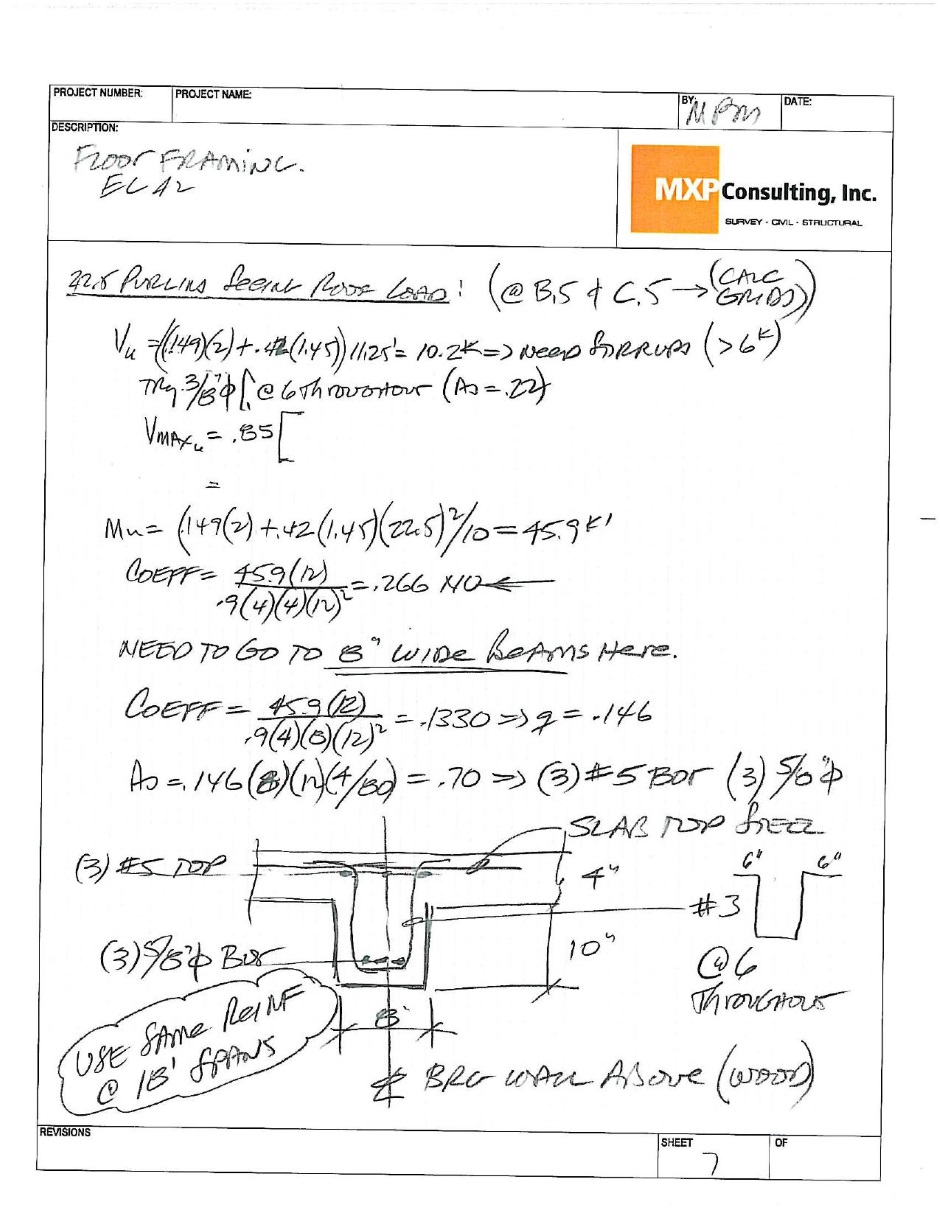 PROJECT NUMBER:
PROJECT NAME:
BY: MPM
DATE:
DESCRIPTION:
FLOOR FRAMING.
MXP Consulting, Inc.
SURVEY - CIVIL - STRUCTURAL
22.5 PURLINS SEEING ROOF LOAD: (@ B.5 & C.5 → (CALC GRIDS))
Vu = ((.149)(2) + .42(1.45)) 11.25' = 10.2K => NEED STIRRUPS (>6K)
TRY 3/8"φ [ @ 6 THROUGHOUT (As = .22)
VMAXu = .85 [
=
Mu = (.149(2) + .42(1.45)(22.5)²/10 = 45.9 K'
COEFF = 45.9(12) / .9(4)(4)(12)² = .266 NO ←
NEED TO GO TO 8" WIDE BEAMS HERE.
COEFF = 45.9(12) / .9(4)(8)(12)² = .1330 => q = .146
As = .146(8)(12)(4/60) = .70 => (3) #5 BOT (3) 5/8"φ
SLAB TOP STEEL
(3) #5 TOP
4"
6" 6"
#3
(3) 5/8"φ BOT
10"
@ 6
THROUGHOUT
8"
USE SAME REINF
@ 18' SPANS
℄ BRG WALL ABOVE (WOOD)
REVISIONS
SHEET
7
OF